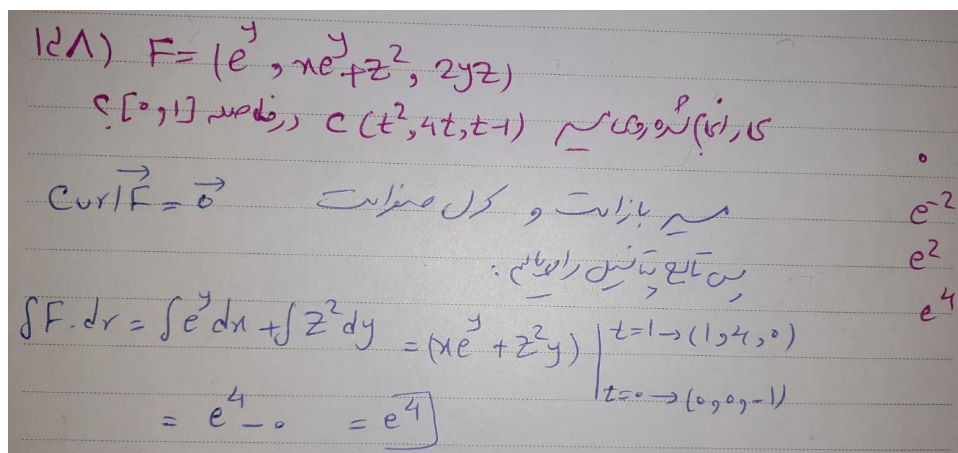 ۱۵۸) F = (e^y, xe^y+z², 2yz)
کار انجام شده روی مسیر c(t², 4t, t-1) در فاصله [0,1]؟
0
Curl F⃗ = 0⃗ مسیر باز است و کرل صفر است
e^-2
پس تابع پتانسیل را می‌یابیم:
e^2
e^4
∫F.dr = ∫e^y dx + ∫z² dy = (xe^y + z²y) | t=1→(1,4,0)
t=0→(0,0,-1)
= e^4 - 0 = e^4